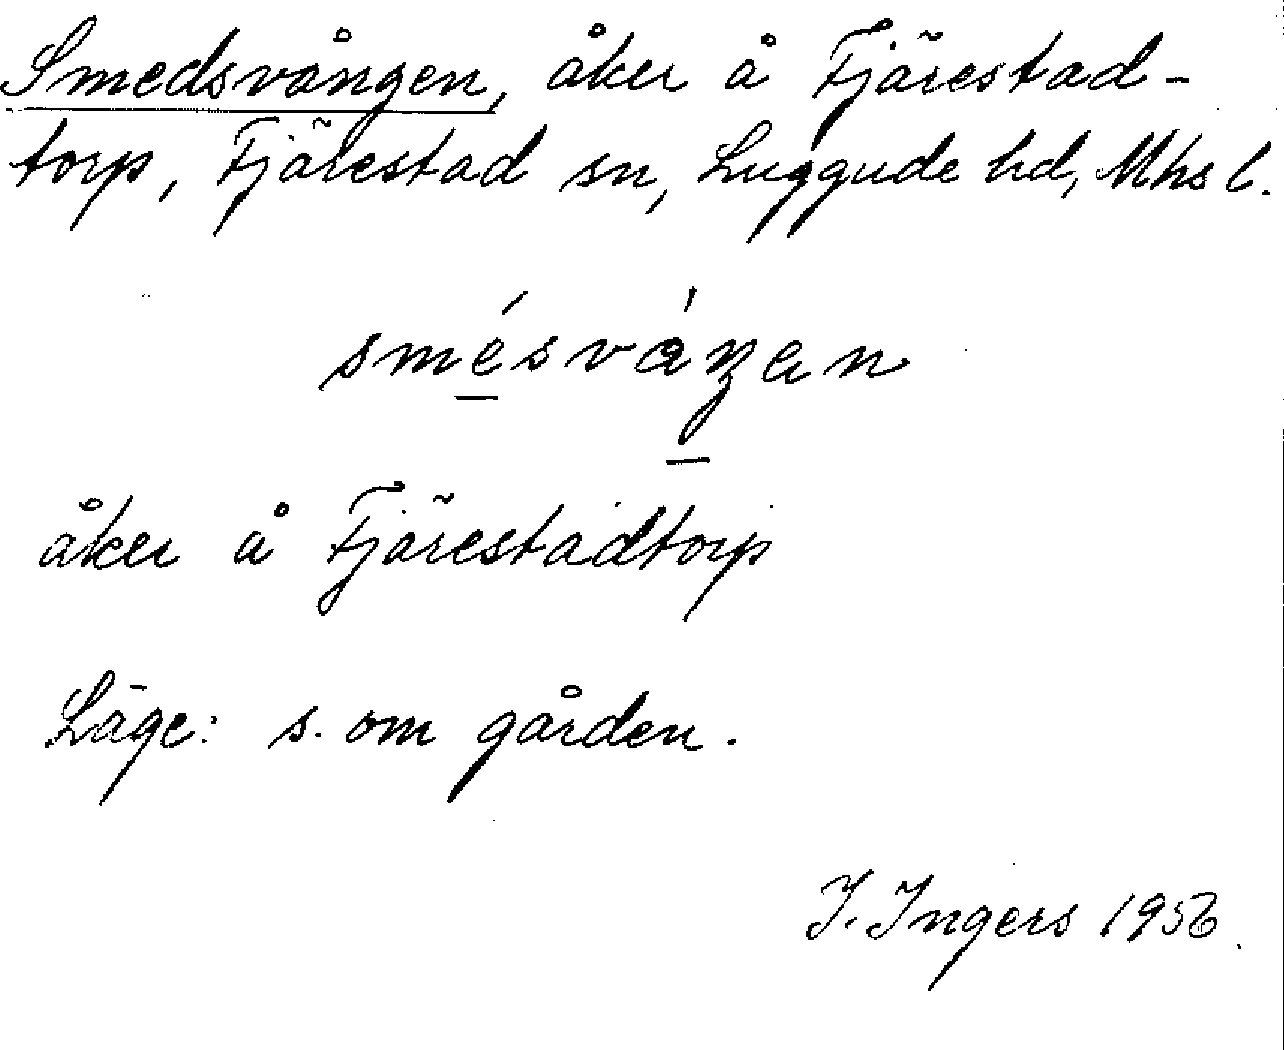 Smedsvången, åker å Fjärestad-
torp, Fjärestad sn, Luggude hd, Mhs l.
smésváŋen
åker å Fjärestadtorp
Läge: s. om gården.
I. Ingers 1956.